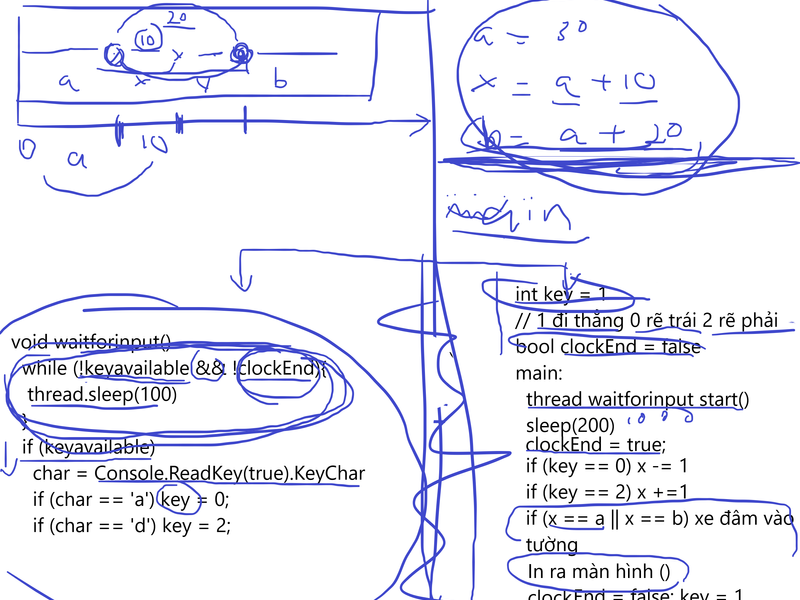 20
10
x
a x y b
0 a 10
a = 30
x = a + 10
b = a + 20
main
void waitforinput()
while (!keyavailable && !clockEnd){
thread.sleep(100)
}
if (keyavailable)
char = Console.ReadKey(true).KeyChar
if (char == 'a') key = 0;
if (char == 'd') key = 2;
int key = 1
// 1 đi thẳng 0 rẽ trái 2 rẽ phải
bool clockEnd = false
main:
thread waitforinput start()
sleep(200)
clockEnd = true;
if (key == 0) x -= 1
if (key == 2) x +=1
if (x == a || x == b) xe đâm vào
tường
In ra màn hình ()
clockEnd = false; key = 1